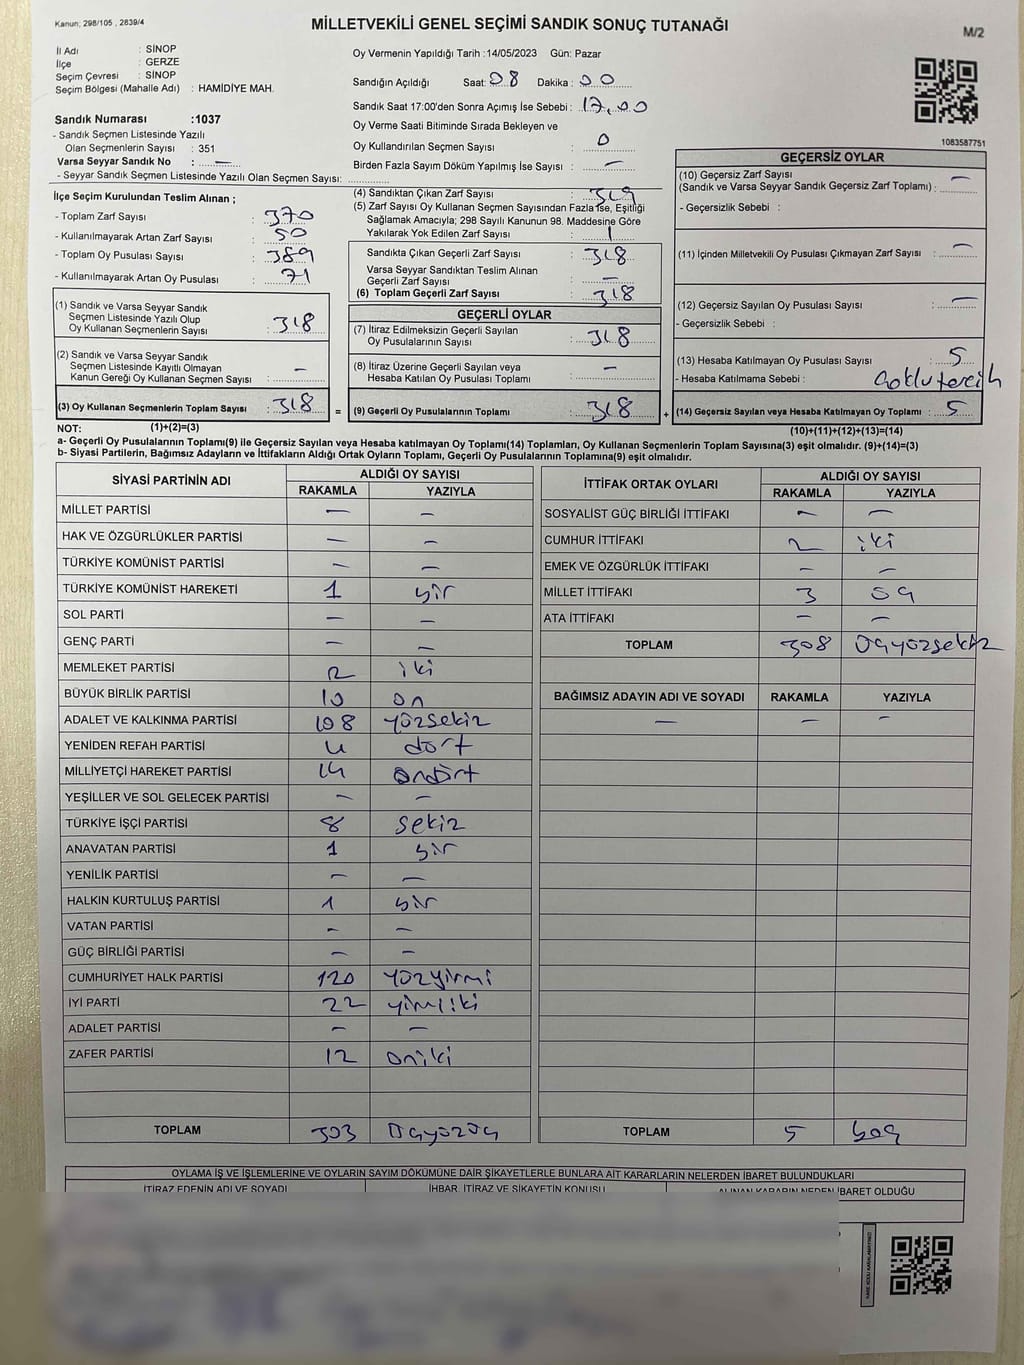 Kanun; 298/105 , 2839/4
MİLLETVEKİLİ GENEL SEÇİMİ SANDIK SONUÇ TUTANAĞI
M/2
İl Adı : SİNOP
İlçe : GERZE
Seçim Çevresi : SİNOP
Seçim Bölgesi (Mahalle Adı) : HAMİDİYE MAH.
Sandık Numarası :1037
- Sandık Seçmen Listesinde Yazılı
Olan Seçmenlerin Sayısı : 351
Varsa Seyyar Sandık No : —
- Seyyar Sandık Seçmen Listesinde Yazılı Olan Seçmen Sayısı:
Oy Vermenin Yapıldığı Tarih :14/05/2023 Gün: Pazar
Sandığın Açıldığı Saat: 08 Dakika : 00
Sandık Saat 17:00'den Sonra Açımış İse Sebebi : 17,00
Oy Verme Saati Bitiminde Sırada Bekleyen ve
Oy Kullandırılan Seçmen Sayısı : 0
Birden Fazla Sayım Döküm Yapılmış İse Sayısı : —
1083587751
İlçe Seçim Kurulundan Teslim Alınan ;
- Toplam Zarf Sayısı : 370
- Kullanılmayarak Artan Zarf Sayısı : 50
- Toplam Oy Pusulası Sayısı : 389
- Kullanılmayarak Artan Oy Pusulası : 71
(1) Sandık ve Varsa Seyyar Sandık
Seçmen Listesinde Yazılı Olup
Oy Kullanan Seçmenlerin Sayısı : 318
(2) Sandık ve Varsa Seyyar Sandık
Seçmen Listesinde Kayıtlı Olmayan
Kanun Gereği Oy Kullanan Seçmen Sayısı : —
(3) Oy Kullanan Seçmenlerin Toplam Sayısı : 318 =
(4) Sandıktan Çıkan Zarf Sayısı : 319
(5) Zarf Sayısı Oy Kullanan Seçmen Sayısından Fazla İse, Eşitliği
Sağlamak Amacıyla; 298 Sayılı Kanunun 98. Maddesine Göre
Yakılarak Yok Edilen Zarf Sayısı : 1
Sandıkta Çıkan Geçerli Zarf Sayısı : 318
Varsa Seyyar Sandıktan Teslim Alınan
Geçerli Zarf Sayısı : —
(6) Toplam Geçerli Zarf Sayısı : 318
GEÇERLİ OYLAR
(7) İtiraz Edilmeksizin Geçerli Sayılan
Oy Pusulalarının Sayısı : 318
(8) İtiraz Üzerine Geçerli Sayılan veya
Hesaba Katılan Oy Pusulası Toplamı : —
(9) Geçerli Oy Pusulalarının Toplamı : 318 +
GEÇERSİZ OYLAR
(10) Geçersiz Zarf Sayısı
(Sandık ve Varsa Seyyar Sandık Geçersiz Zarf Toplamı) : —
- Geçersizlik Sebebi :
(11) İçinden Milletvekili Oy Pusulası Çıkmayan Zarf Sayısı : —
(12) Geçersiz Sayılan Oy Pusulası Sayısı : —
- Geçersizlik Sebebi :
(13) Hesaba Katılmayan Oy Pusulası Sayısı : 5
- Hesaba Katılmama Sebebi : Çoklu tercih
(14) Geçersiz Sayılan veya Hesaba Katılmayan Oy Toplamı : 5
NOT: (1)+(2)=(3) (10)+(11)+(12)+(13)=(14)
a- Geçerli Oy Pusulalarının Toplamı(9) ile Geçersiz Sayılan veya Hesaba katılmayan Oy Toplamı(14) Toplamları, Oy Kullanan Seçmenlerin Toplam Sayısına(3) eşit olmalıdır. (9)+(14)=(3)
b- Siyasi Partilerin, Bağımsız Adayların ve İttifakların Aldığı Ortak Oyların Toplamı, Geçerli Oy Pusulalarının Toplamına(9) eşit olmalıdır.
SİYASİ PARTİNİN ADI ALDIĞI OY SAYISI
RAKAMLA YAZIYLA
MİLLET PARTİSİ — —
HAK VE ÖZGÜRLÜKLER PARTİSİ — —
TÜRKİYE KOMÜNİST PARTİSİ — —
TÜRKİYE KOMÜNİST HAREKETİ 1 bir
SOL PARTİ — —
GENÇ PARTİ — —
MEMLEKET PARTİSİ 2 iki
BÜYÜK BİRLİK PARTİSİ 10 on
ADALET VE KALKINMA PARTİSİ 108 yüzsekiz
YENİDEN REFAH PARTİSİ 4 dört
MİLLİYETÇİ HAREKET PARTİSİ 14 ondört
YEŞİLLER VE SOL GELECEK PARTİSİ — —
TÜRKİYE İŞÇİ PARTİSİ 8 sekiz
ANAVATAN PARTİSİ 1 bir
YENİLİK PARTİSİ — —
HALKIN KURTULUŞ PARTİSİ 1 bir
VATAN PARTİSİ — —
GÜÇ BİRLİĞİ PARTİSİ — —
CUMHURİYET HALK PARTİSİ 120 yüzyirmi
İYİ PARTİ 22 yirmiiki
ADALET PARTİSİ — —
ZAFER PARTİSİ 12 oniki
TOPLAM 303 üçyüzüç
İTTİFAK ORTAK OYLARI ALDIĞI OY SAYISI
RAKAMLA YAZIYLA
SOSYALİST GÜÇ BİRLİĞİ İTTİFAKI — —
CUMHUR İTTİFAKI 2 iki
EMEK VE ÖZGÜRLÜK İTTİFAKI — —
MİLLET İTTİFAKI 3 üç
ATA İTTİFAKI — —
TOPLAM 308 üçyüzsekiz
BAĞIMSIZ ADAYIN ADI VE SOYADI RAKAMLA YAZIYLA
— — —
TOPLAM 5 beş
OYLAMA İŞ VE İŞLEMLERİNE VE OYLARIN SAYIM DÖKÜMÜNE DAİR ŞİKAYETLERLE BUNLARA AİT KARARLARIN NELERDEN İBARET BULUNDUKLARI
İTİRAZ EDENİN ADI VE SOYADI İHBAR, İTİRAZ VE ŞİKAYETİN KONUSU ALINAN KARARIN NEDEN İBARET OLDUĞU